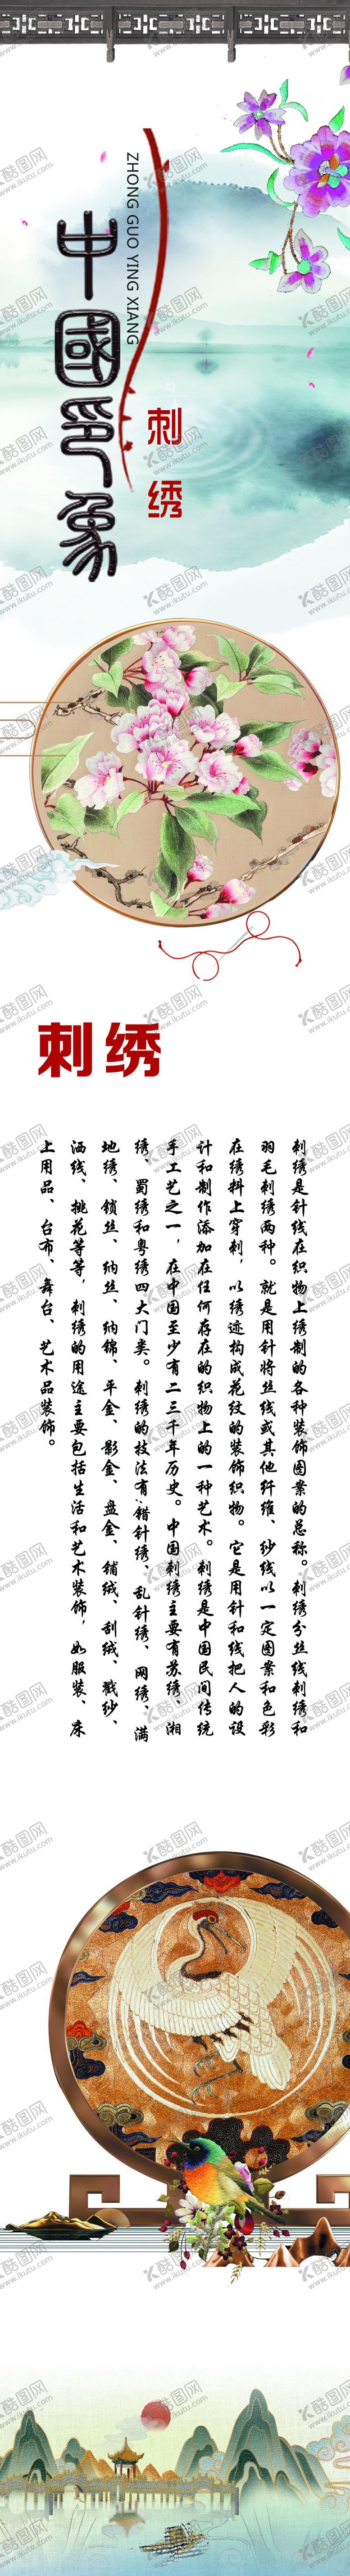 中國印象
ZHONG GUO YING XIANG
刺绣
刺绣
刺绣是针线在织物上绣制的各种装饰图案的总称。刺绣分丝线刺绣和
羽毛刺绣两种。就是用针将丝线或其他纤维、纱线以一定图案和色彩
在绣料上穿刺，以绣迹构成花纹的装饰织物。它是用针和线把人的设
计和制作添加在任何存在的织物上的一种艺术。刺绣是中国民间传统
手工艺之一，在中国至少有二三千年历史。中国刺绣主要有苏绣、湘
绣、蜀绣和粤绣四大门类。刺绣的技法有:错针绣、乱针绣、网绣、满
地绣、锁丝、纳丝、纳锦、平金、影金、盘金、铺绒、刮绒、戳纱、
洒线、挑花等等，刺绣的用途主要包括生活和艺术装饰，如服装、床
上用品、台布、舞台、艺术品装饰。
酷图网
www.ikutu.com